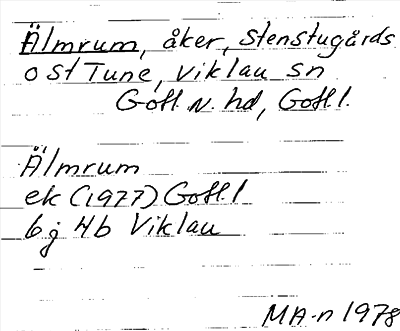 Älmrum, åker, Stenstugårds
o St Tune, Viklau sn
Gotl. N. hd, Gotl.
Älmrum
ek (1977) Gotl.
6j 4b Viklau
MA-n 1978